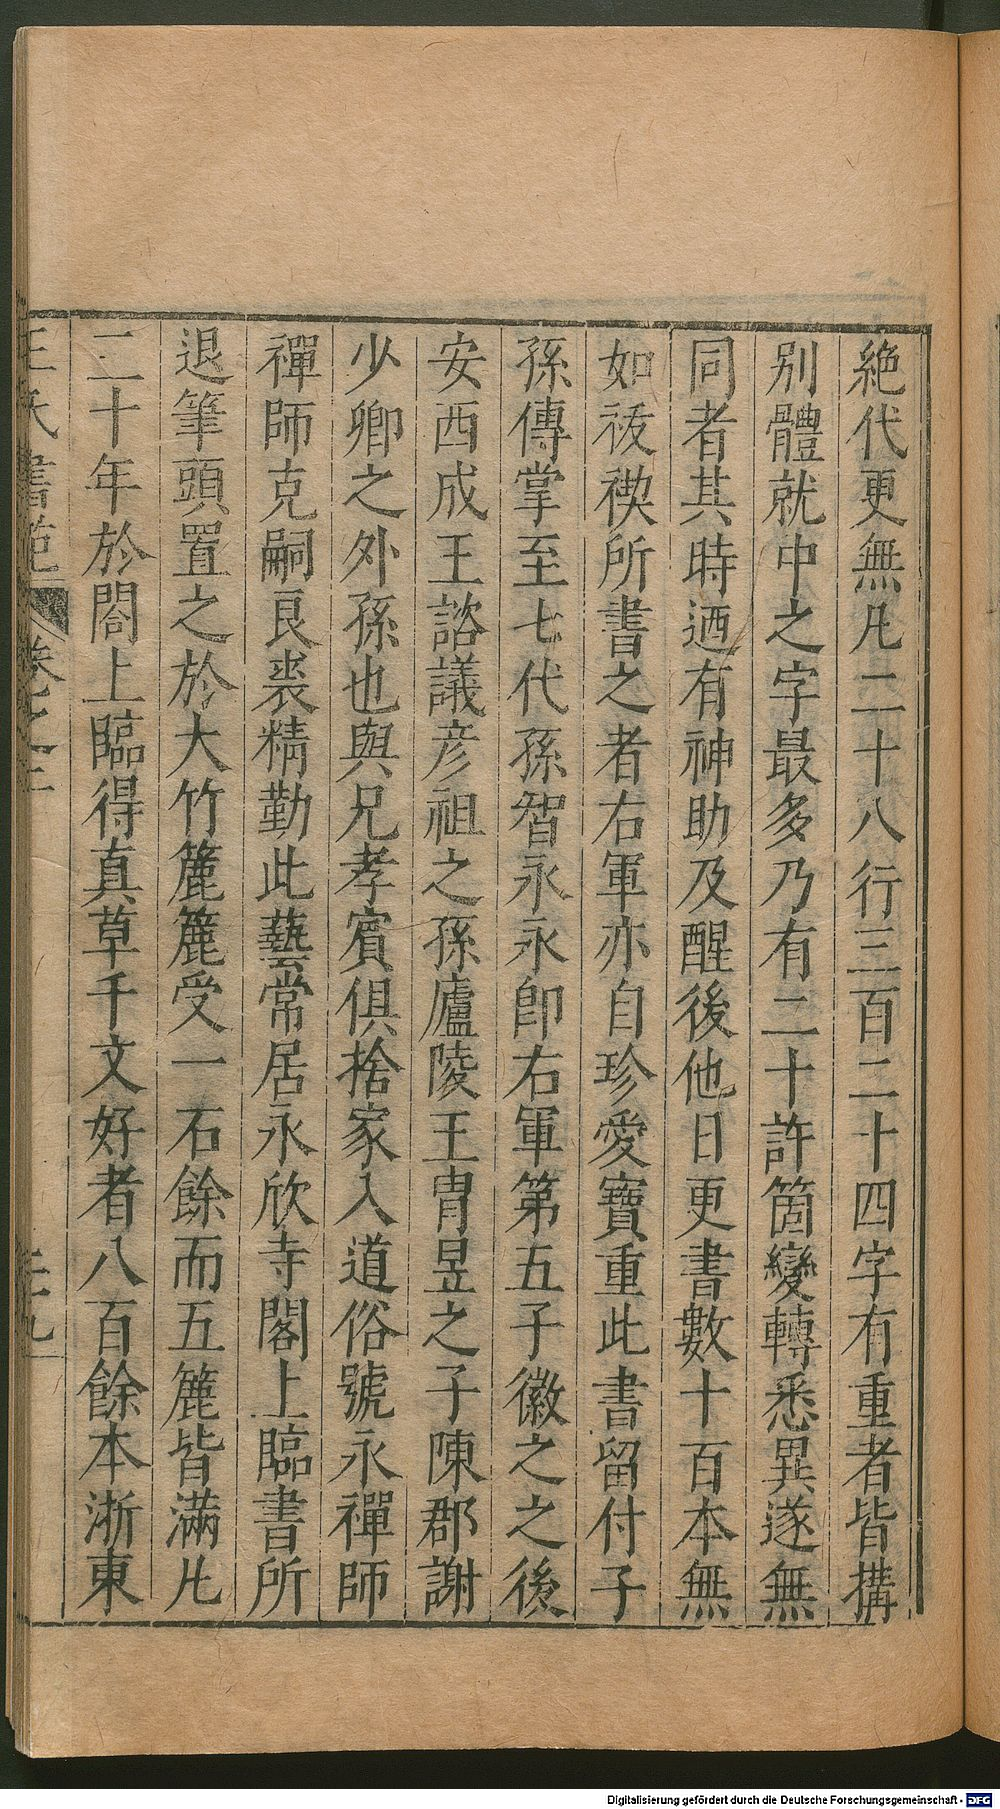 絶代更無凡二十八行三百二十四字有重者皆搆
別體就中之字最多乃有二十許箇變轉悉異遂無
同者其時迺有神助及醒後他日更書數十百本無
如祓禊所書之者右軍亦自珍愛寶重此書留付子
孫傳掌至七代孫智永永即右軍第五子徽之之後
安西成王諮議彦祖之孫廬陵王冑昱之子陳郡謝
少卿之外孫也與兄孝賓俱捨家入道俗號永禪師
禪師克嗣良裘精勤此藝常居永欣寺閣上臨書所
退筆頭置之於大竹簏簏受一石餘而五簏皆滿凡
二十年於閤上臨得真草千文好者八百餘本浙東
王氏書苑 卷之二 二十九
Digitalisierung gefördert durch die Deutsche Forschungsgemeinschaft - DFG